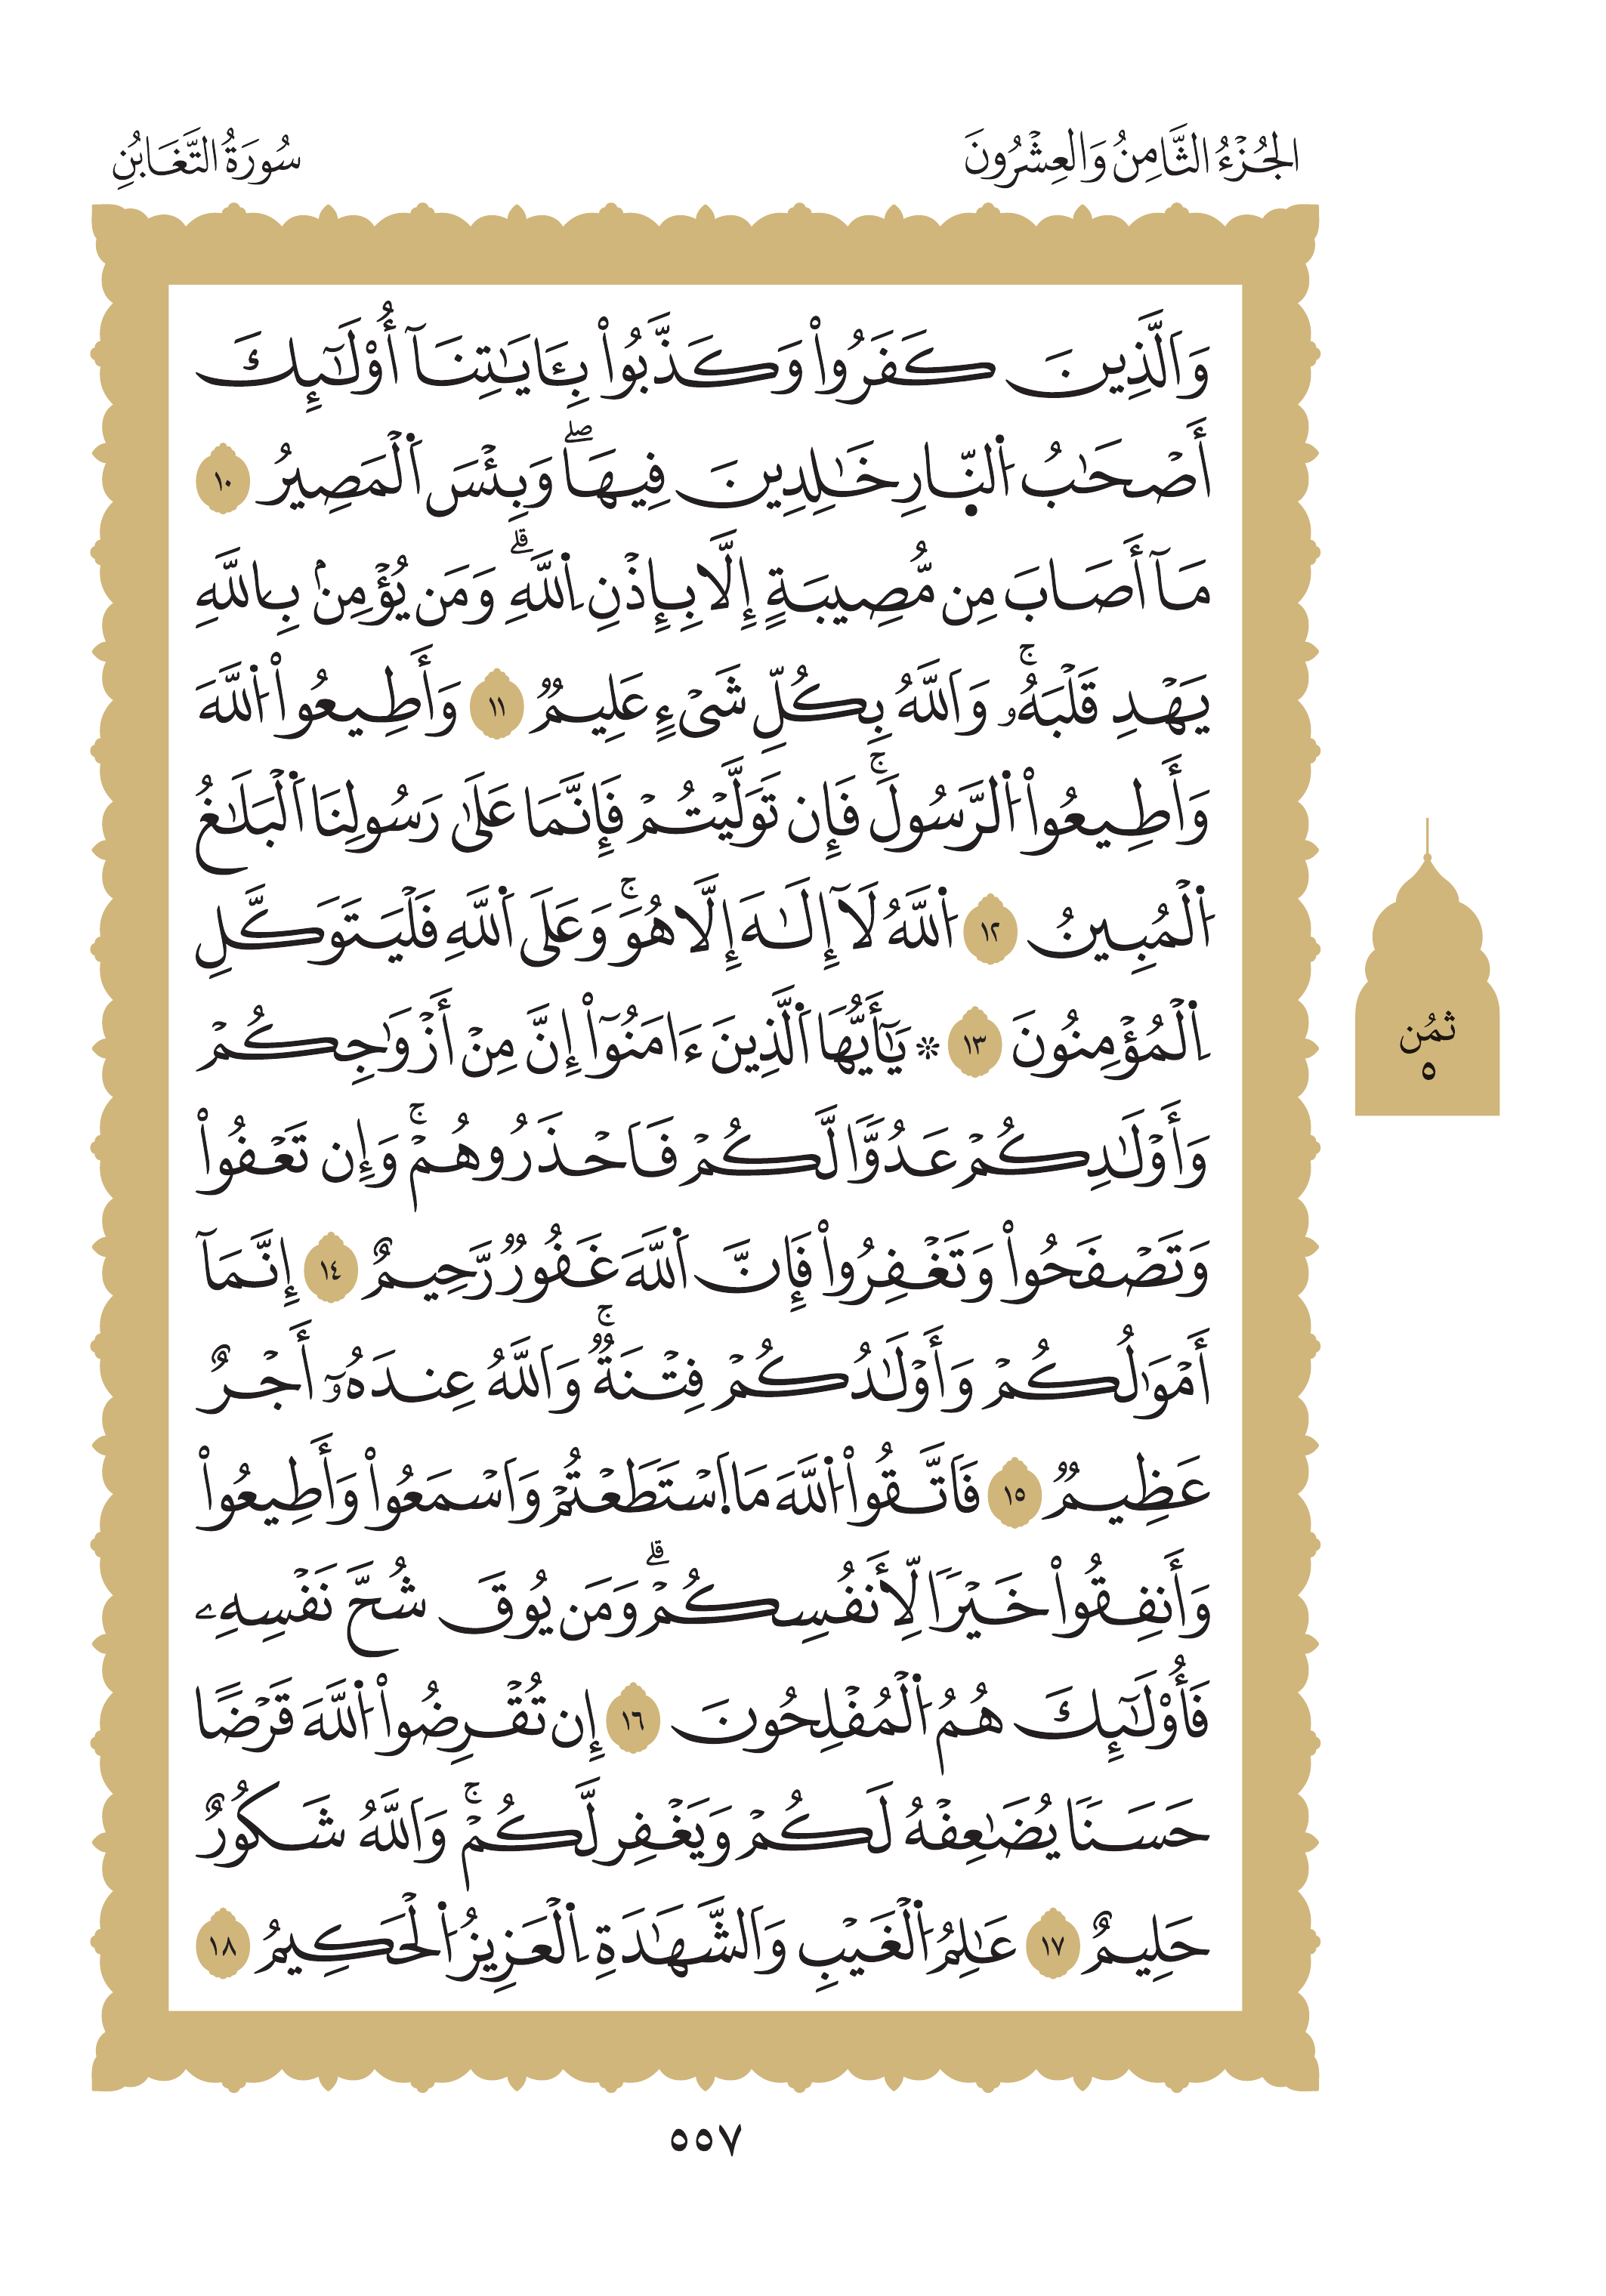 الجُزْءُ الثَّامِنُ وَالعِشْرُونَ
سُورَةُ التَّغَابُنِ
وَالَّذِينَ كَفَرُواْ وَكَذَّبُواْ بِـَٔايَٰتِنَآ أُوْلَٰٓئِكَ
أَصْحَٰبُ اُ۬لنّ۪ارِ خَٰلِدِينَ فِيهَاۖ وَبِئْسَ اَ۬لْمَصِيرُ ١٠
مَآ أَصَابَ مِن مُّصِيبَةٍ إِلَّا بِإِذْنِ اِ۬للَّهِۗ وَمَن يُؤْمِنۢ بِاللَّهِ
يَهْدِ قَلْبَهُۥۚ وَاَللَّهُ بِكُلِّ شَىْءٍ عَلِيمٞ ١١ وَأَطِيعُواْ اُ۬للَّهَ
وَأَطِيعُواْ اُ۬لرَّسُولَۚ فَإِن تَوَلَّيْتُمْ فَإِنَّمَا عَلَىٰ رَسُولِنَا اَ۬لْبَلَٰغُ
اُ۬لْمُبِينُ ١٢ اُ۬للَّهُ لَآ إِلَٰهَ إِلَّا هُوَۚ وَعَلَى اَ۬للَّهِ فَلْيَتَوَكَّلِ
اِ۬لْمُؤْمِنُونَ ١٣ ۞ يَٰٓأَيُّهَا اَ۬لَّذِينَ ءَامَنُوٓاْ إِنَّ مِنْ أَزْوَٰجِكُمْ
وَأَوْلَٰدِكُمْ عَدُوّٗا لَّكُمْ فَاَحْذَرُوهُمْۚ وَإِن تَعْفُواْ
وَتَصْفَحُواْ وَتَغْفِرُواْ فَإِنَّ اَ۬للَّهَ غَفُورٞ رَّحِيمٌ ١٤ إِنَّمَآ
أَمْوَٰلُكُمْ وَأَوْلَٰدُكُمْ فِتْنَةٞۚ وَاَللَّهُ عِندَهُۥٓ أَجْرٌ
عَظِيمٞ ١٥ فَاَتَّقُواْ اُ۬للَّهَ مَا اَ۪سْتَطَعْتُمْ وَاَسْمَعُواْ وَأَطِيعُواْ
وَأَنفِقُواْ خَيْرٗا لِّأَنفُسِكُمْۗ وَمَن يُوقَ شُحَّ نَفْسِهِۦ
فَأُوْلَٰٓئِكَ هُمُ اُ۬لْمُفْلِحُونَ ١٦ إِن تُقْرِضُواْ اُ۬للَّهَ قَرْضًا
حَسَنٗا يُضَٰعِفْهُ لَكُمْ وَيَغْفِر لَّكُمْۚ وَاَللَّهُ شَكُورٌ
حَلِيمٌ ١٧ عَٰلِمُ اُ۬لْغَيْبِ وَاَلشَّهَٰدَةِ اِ۬لْعَزِيزُ اُ۬لْحَكِيمُ ١٨
ثمُن
٥
٥٥٧